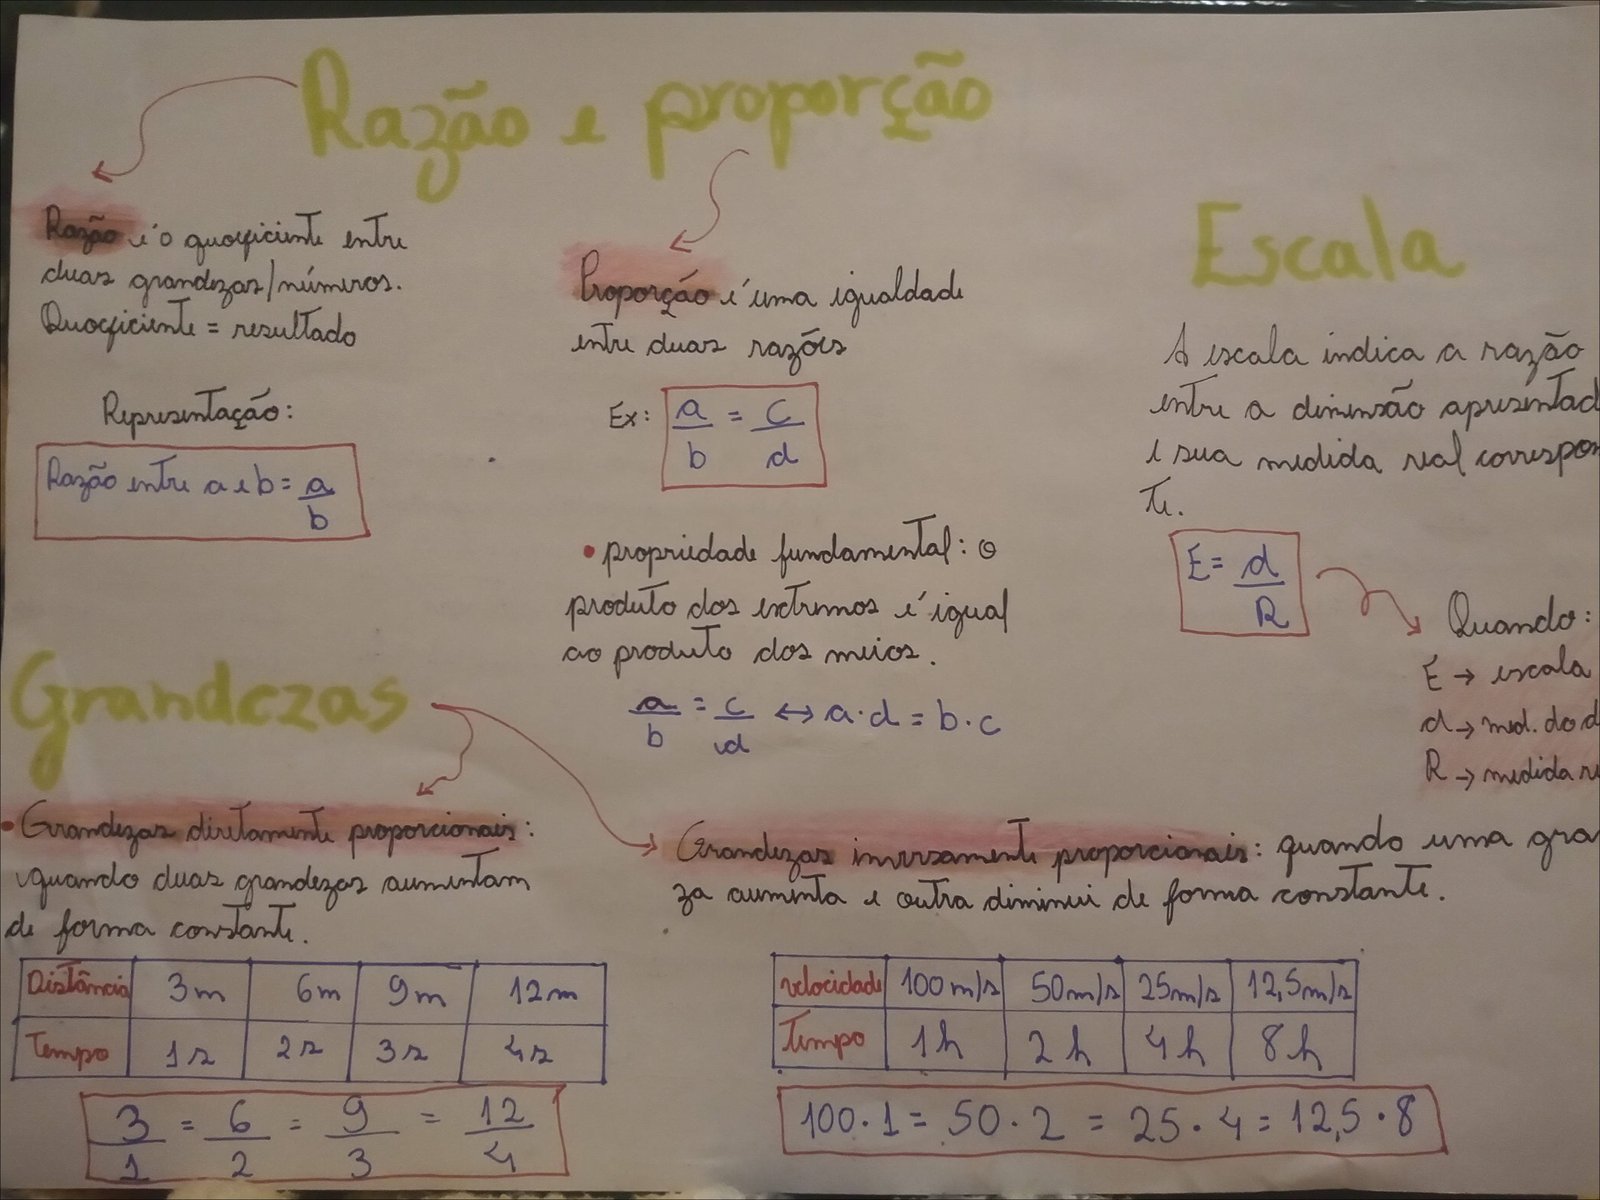 Razão e proporção
Razão é o quoficiente entre
duas grandezas/números.
Quoficiente = resultado
Representação:
Razão entre a e b = a/b
Proporção é uma igualdade
entre duas razões
Ex: a/b = c/d
• propriedade fundamental: o
produto dos extremos é igual
ao produto dos meios.
a/b = c/d ↔ a·d = b·c
Escala
A escala indica a razão
entre a dimensão apresentad
e sua medida real correspon
te.
E = d/R
Quando:
E → escala
d → med. do d
R → medida re
Grandezas
• Grandezas diretamente proporcionais:
quando duas grandezas aumentam
de forma constante.
Distância 3m 6m 9m 12m
Tempo 1s 2s 3s 4s
3/1 = 6/2 = 9/3 = 12/4
Grandezas inversamente proporcionais: quando uma gran
za aumenta e outra diminui de forma constante.
velocidade 100m/s 50m/s 25m/s 12,5m/s
Tempo 1h 2h 4h 8h
100·1 = 50·2 = 25·4 = 12,5·8